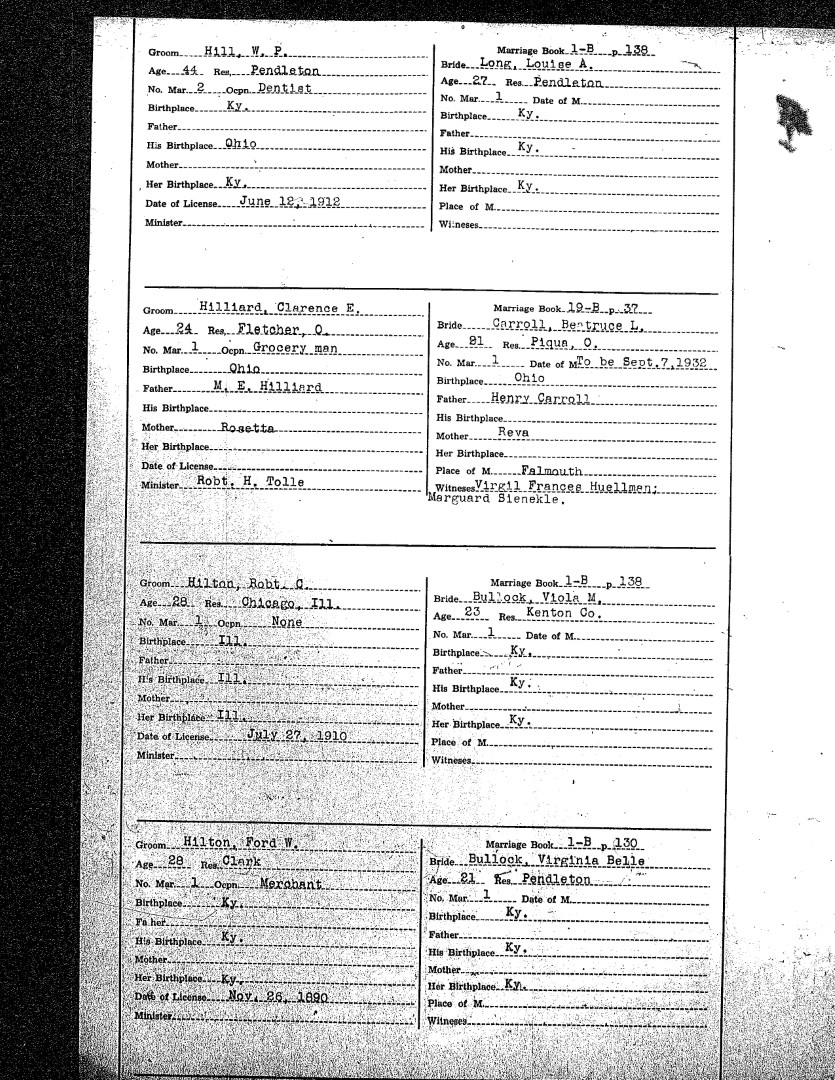 Groom Hill, W. P.
Age 44 Res. Pendleton
No. Mar. 2 Ocpn. Dentist
Birthplace Ky.
Father
His Birthplace Ohio
Mother
Her Birthplace Ky.
Date of License June 12, 1912
Minister
Marriage Book 1-B p. 138
Bride Long, Louise A.
Age 27 Res. Pendleton
No. Mar. 1 Date of M.
Birthplace Ky.
Father
His Birthplace Ky.
Mother
Her Birthplace Ky.
Place of M.
Witneses
Groom Hilliard, Clarence E.
Age 24 Res. Fletcher, O.
No. Mar. 1 Ocpn. Grocery man
Birthplace Ohio
Father M. E. Hilliard
His Birthplace
Mother Rosetta
Her Birthplace
Date of License
Minister Robt. H. Tolle
Marriage Book 19-B p. 37
Bride Carroll, Beatruce L.
Age 21 Res. Piqua, O.
No. Mar. 1 Date of M To be Sept.7,1932
Birthplace Ohio
Father Henry Carroll
His Birthplace
Mother Reva
Her Birthplace
Place of M. Falmouth
Witneses Virgil Frances Huellman;
Marguard Sienekle.
Groom Hilton, Robt. C.
Age 28 Res. Chicago, Ill.
No. Mar. 1 Ocpn. None
Birthplace Ill.
Father
His Birthplace Ill.
Mother
Her Birthplace Ill.
Date of License July 27, 1910
Minister
Marriage Book 1-B p. 138
Bride Bullock, Viola M.
Age 23 Res. Kenton Co.
No. Mar. 1 Date of M.
Birthplace Ky.
Father
His Birthplace Ky.
Mother
Her Birthplace Ky.
Place of M.
Witneses
Groom Hilton, Ford W.
Age 28 Res. Clark
No. Mar. 1 Ocpn. Merchant
Birthplace Ky.
Father
His Birthplace Ky.
Mother
Her Birthplace Ky.
Date of License Nov. 26, 1890
Minister
Marriage Book 1-B p. 130
Bride Bullock, Virginia Belle
Age 21 Res. Pendleton
No. Mar. 1 Date of M.
Birthplace Ky.
Father
His Birthplace Ky.
Mother
Her Birthplace Ky.
Place of M.
Witneses